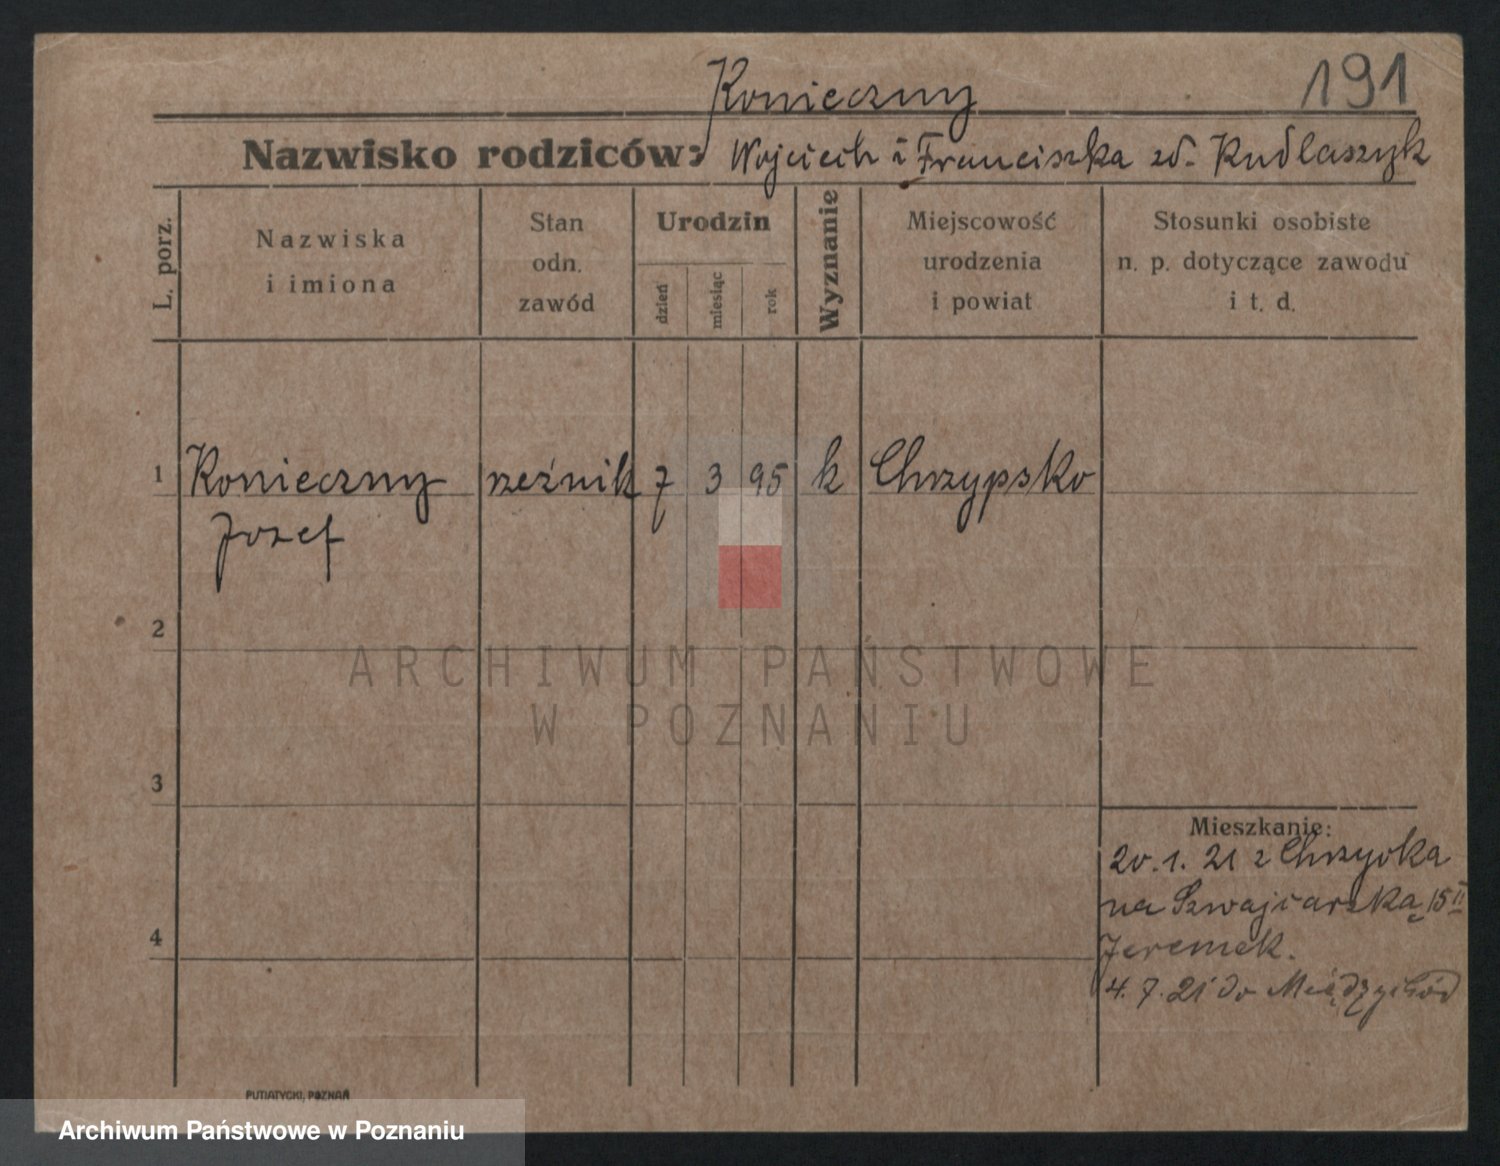 Konieczny
191
Nazwisko rodziców: Wojciech i Franciszka zd. Kudlaszyk
L. porz.
Nazwiska
i imiona
Stan
odn.
zawód
Urodzin
dzień
miesiąc
rok
Wyznanie
Miejscowość
urodzenia
i powiat
Stosunki osobiste
n. p. dotyczące zawodu
i t. d.
1 Konieczny rzeźnik 7 3 95 k Chrzypsko
Jozef
2
ARCHIWUM PAŃSTWOWE
W POZNANIU
3
Mieszkanie:
20. 1. 21 z Chrzypka
na Szwajcarską 15 II
4
Jeremek.
4. 7. 21 do Międzychód
PUTIATYCKI, POZNAŃ
Archiwum Państwowe w Poznaniu